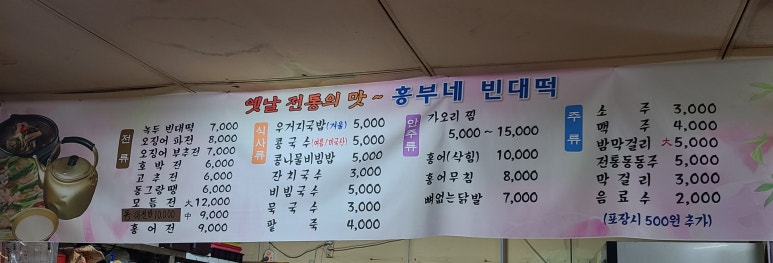 옛날 전통의 맛 ~ 흥부네 빈대떡
전류
녹두 빈대떡 7,000
오징어 파전 8,000
오징어 부추전 7,000
호박전 6,000
고추전 6,000
동그랑땡 6,000
모듬전 大 12,000
10,000 中 9,000
홍어전 9,000
식사류
우거지국밥(겨울) 5,000
콩국수(여름/미국산) 5,000
콩나물비빔밥 5,000
잔치국수 3,000
비빔국수 5,000
묵국수 3,000
팥죽 4,000
안주류
가오리 찜
5,000 ~ 15,000
홍어(삭힘) 10,000
홍어무침 8,000
뼈없는닭발 7,000
주류
소주 3,000
맥주 4,000
밤막걸리 大 5,000
전통동동주 5,000
막걸리 3,000
음료수 2,000
(포장시 500원 추가)